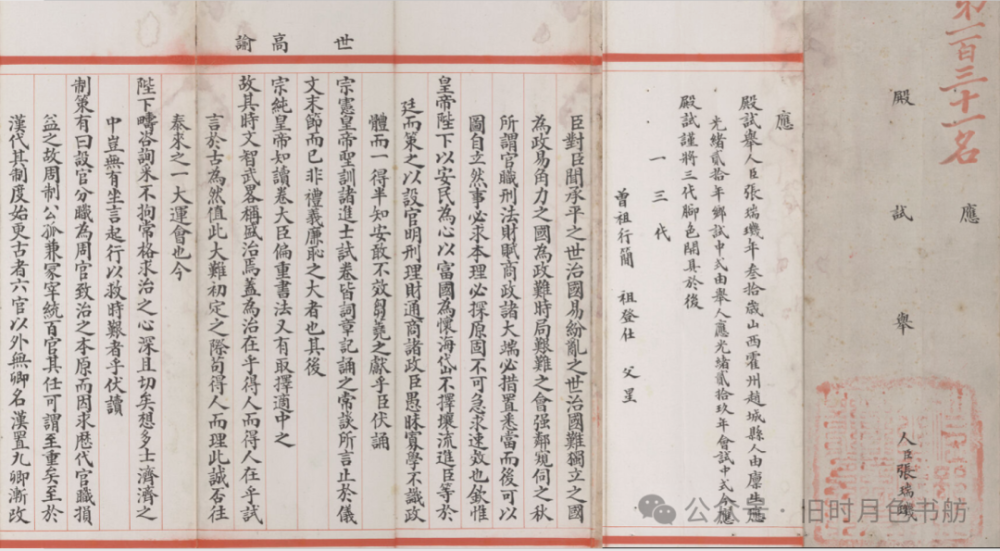 第一百三十一名
應
殿試舉
人臣張瑞璣
應
殿試舉人臣張瑞璣年叁拾歲山西霍州趙城縣人由廩生應
光緒貳拾年鄉試中式由舉人應光緒貳拾玖年會試中式今應
殿試謹將三代腳色開具於後
一三代
曾祖行簡 祖登仕 父星
臣對臣聞承平之世治國易紛亂之世治國難獨立之國
為政易角力之國為政難時局艱難之會强鄰窺伺之秋
所謂官職刑法財賦商政諸大端必措置悉當而後可以
圖自立然事必求本理必探原固不可急求速效也欽惟
皇帝陛下以安民為心以富國為懷海岱不擇壤流進臣等於
廷而策之以設官明刑理財通商諸政臣愚昧實學不識政
體而一得半知安敢不效芻蕘之獻乎臣伏誦
世宗憲皇帝聖訓諸進士試卷皆詞章記誦之常談所言止於儀
文末節而已非禮義廉恥之大者也其後
高宗純皇帝知讀卷大臣偏重書法又有取擇適中之
諭故其時文智武略稱盛焉蓋為治在乎得人而得人在乎試
言於古為然值此大難初定之際苟得人而理此誠否往
泰來之一大運會也今
陛下疇咨詢采不拘常格求治之心深且切矣想多士濟濟之
中豈無有坐言起行以救時艱者乎伏讀
制策有曰設官分職為周官致治之本原而因求歷代官職損
益之故周制公孤兼冢宰統百官其任可謂至重矣至於
漢代其制度始更古者六官以外無卿名漢置九卿漸改
公众号·旧时月色书舫